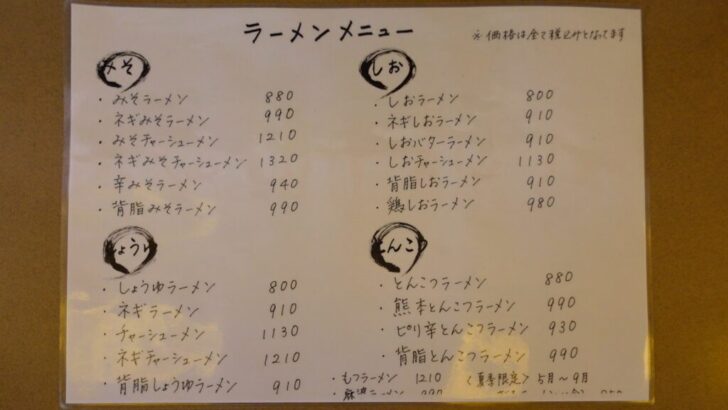 ラーメンメニュー
※価格は全て税込みとなってます
みそ
・みそラーメン 880
・ネギみそラーメン 990
・みそチャーシューメン 1210
・ネギみそチャーシューメン 1320
・辛みそラーメン 940
・背脂みそラーメン 990
しょうゆ
・しょうゆラーメン 800
・ネギラーメン 910
・チャーシューメン 1130
・ネギチャーシューメン 1210
・背脂しょうゆラーメン 910
しお
・しおラーメン 800
・ネギしおラーメン 910
・しおバターラーメン 910
・しおチャーシューメン 1130
・背脂しおラーメン 910
・鶏しおラーメン 980
とんこつ
・とんこつラーメン 880
・熊本とんこつラーメン 990
・ピリ辛とんこつラーメン 930
・背脂とんこつラーメン 990
・もつラーメン 1210 〈夏季限定〉5月〜9月